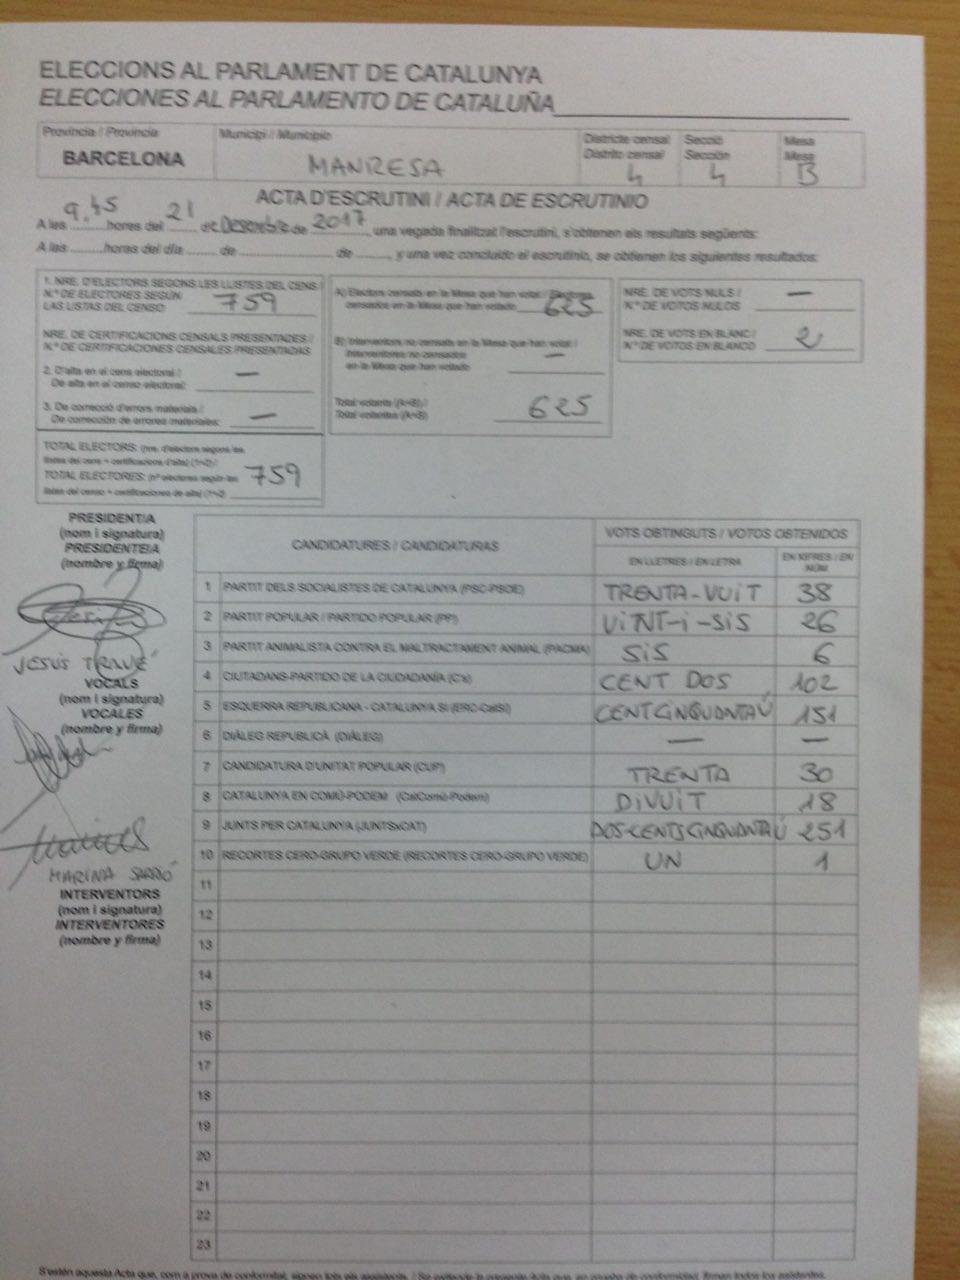 ELECCIONS AL PARLAMENT DE CATALUNYA
ELECCIONES AL PARLAMENTO DE CATALUÑA
Província / Provincia
BARCELONA
Municipi / Municipio
MANRESA
Districte censal
Distrito censal
4
Secció
Sección
4
Mesa
Mesa
B
ACTA D'ESCRUTINI / ACTA DE ESCRUTINIO
A les 9,45 hores del 21 de Desembre de 2017, una vegada finalitzat l'escrutini, s'obtenen els resultats següents:
A las ........horas del día ....... de ........................ de ........, y una vez concluido el escrutinio, se obtienen los siguientes resultados:
1. NRE. D'ELECTORS SEGONS LES LLISTES DEL CENS /
N.º DE ELECTORES SEGÚN
LAS LISTAS DEL CENSO 759
NRE. DE CERTIFICACIONS CENSALS PRESENTADES /
N.º DE CERTIFICACIONES CENSALES PRESENTADAS
2. D'alta en el cens electoral /
De alta en el censo electoral: —
3. De correcció d'errors materials /
De corrección de errores materiales: —
TOTAL ELECTORS: (nre. d'electors segons les
llistes del cens + certificacions d'alta) (1+2) /
TOTAL ELECTORES: (nº electores según las
listas del censo + certificaciones de alta) (1+2) 759
A) Electors censats en la Mesa que han votat / Electores
censados en la Mesa que han votado 625
B) Interventors no censats en la Mesa que han votat /
Interventores no censados
en la Mesa que han votado —
Total votants (A+B) /
Total votantes (A+B) 625
NRE. DE VOTS NULS /
N.º DE VOTOS NULOS —
NRE. DE VOTS EN BLANC /
N.º DE VOTOS EN BLANCO 2
PRESIDENT/A
(nom i signatura)
PRESIDENTE/A
(nombre y firma)
JESÚS
VOCALS
(nom i signatura)
VOCALES
(nombre y firma)
MARINA SARRÓ
INTERVENTORS
(nom i signatura)
INTERVENTORES
(nombre y firma)
CANDIDATURES / CANDIDATURAS
VOTS OBTINGUTS / VOTOS OBTENIDOS
EN LLETRES / EN LETRA
EN XIFRES / EN NÚM.
1 PARTIT DELS SOCIALISTES DE CATALUNYA (PSC-PSOE) TRENTA-VUIT 38
2 PARTIT POPULAR / PARTIDO POPULAR (PP) VINT-I-SIS 26
3 PARTIT ANIMALISTA CONTRA EL MALTRACTAMENT ANIMAL (PACMA) SIS 6
4 CIUTADANS-PARTIDO DE LA CIUDADANÍA (C's) CENT DOS 102
5 ESQUERRA REPUBLICANA - CATALUNYA SÍ (ERC-CatSÍ) CENT CINQUANTA Ú 151
6 DIÀLEG REPUBLICÀ (DIÀLEG) — —
7 CANDIDATURA D'UNITAT POPULAR (CUP) TRENTA 30
8 CATALUNYA EN COMÚ-PODEM (CatComú-Podem) DIVUIT 18
9 JUNTS PER CATALUNYA (JUNTSxCAT) DOS-CENTS CINQUANTA Ú 251
10 RECORTES CERO-GRUPO VERDE (RECORTES CERO-GRUPO VERDE) UN 1
11
12
13
14
15
16
17
18
19
20
21
22
23
S'estén aquesta Acta que, com a prova de conformitat, signen tots els assistents. / Se extiende la presente Acta que, en prueba de conformidad, firman todos los asistentes.